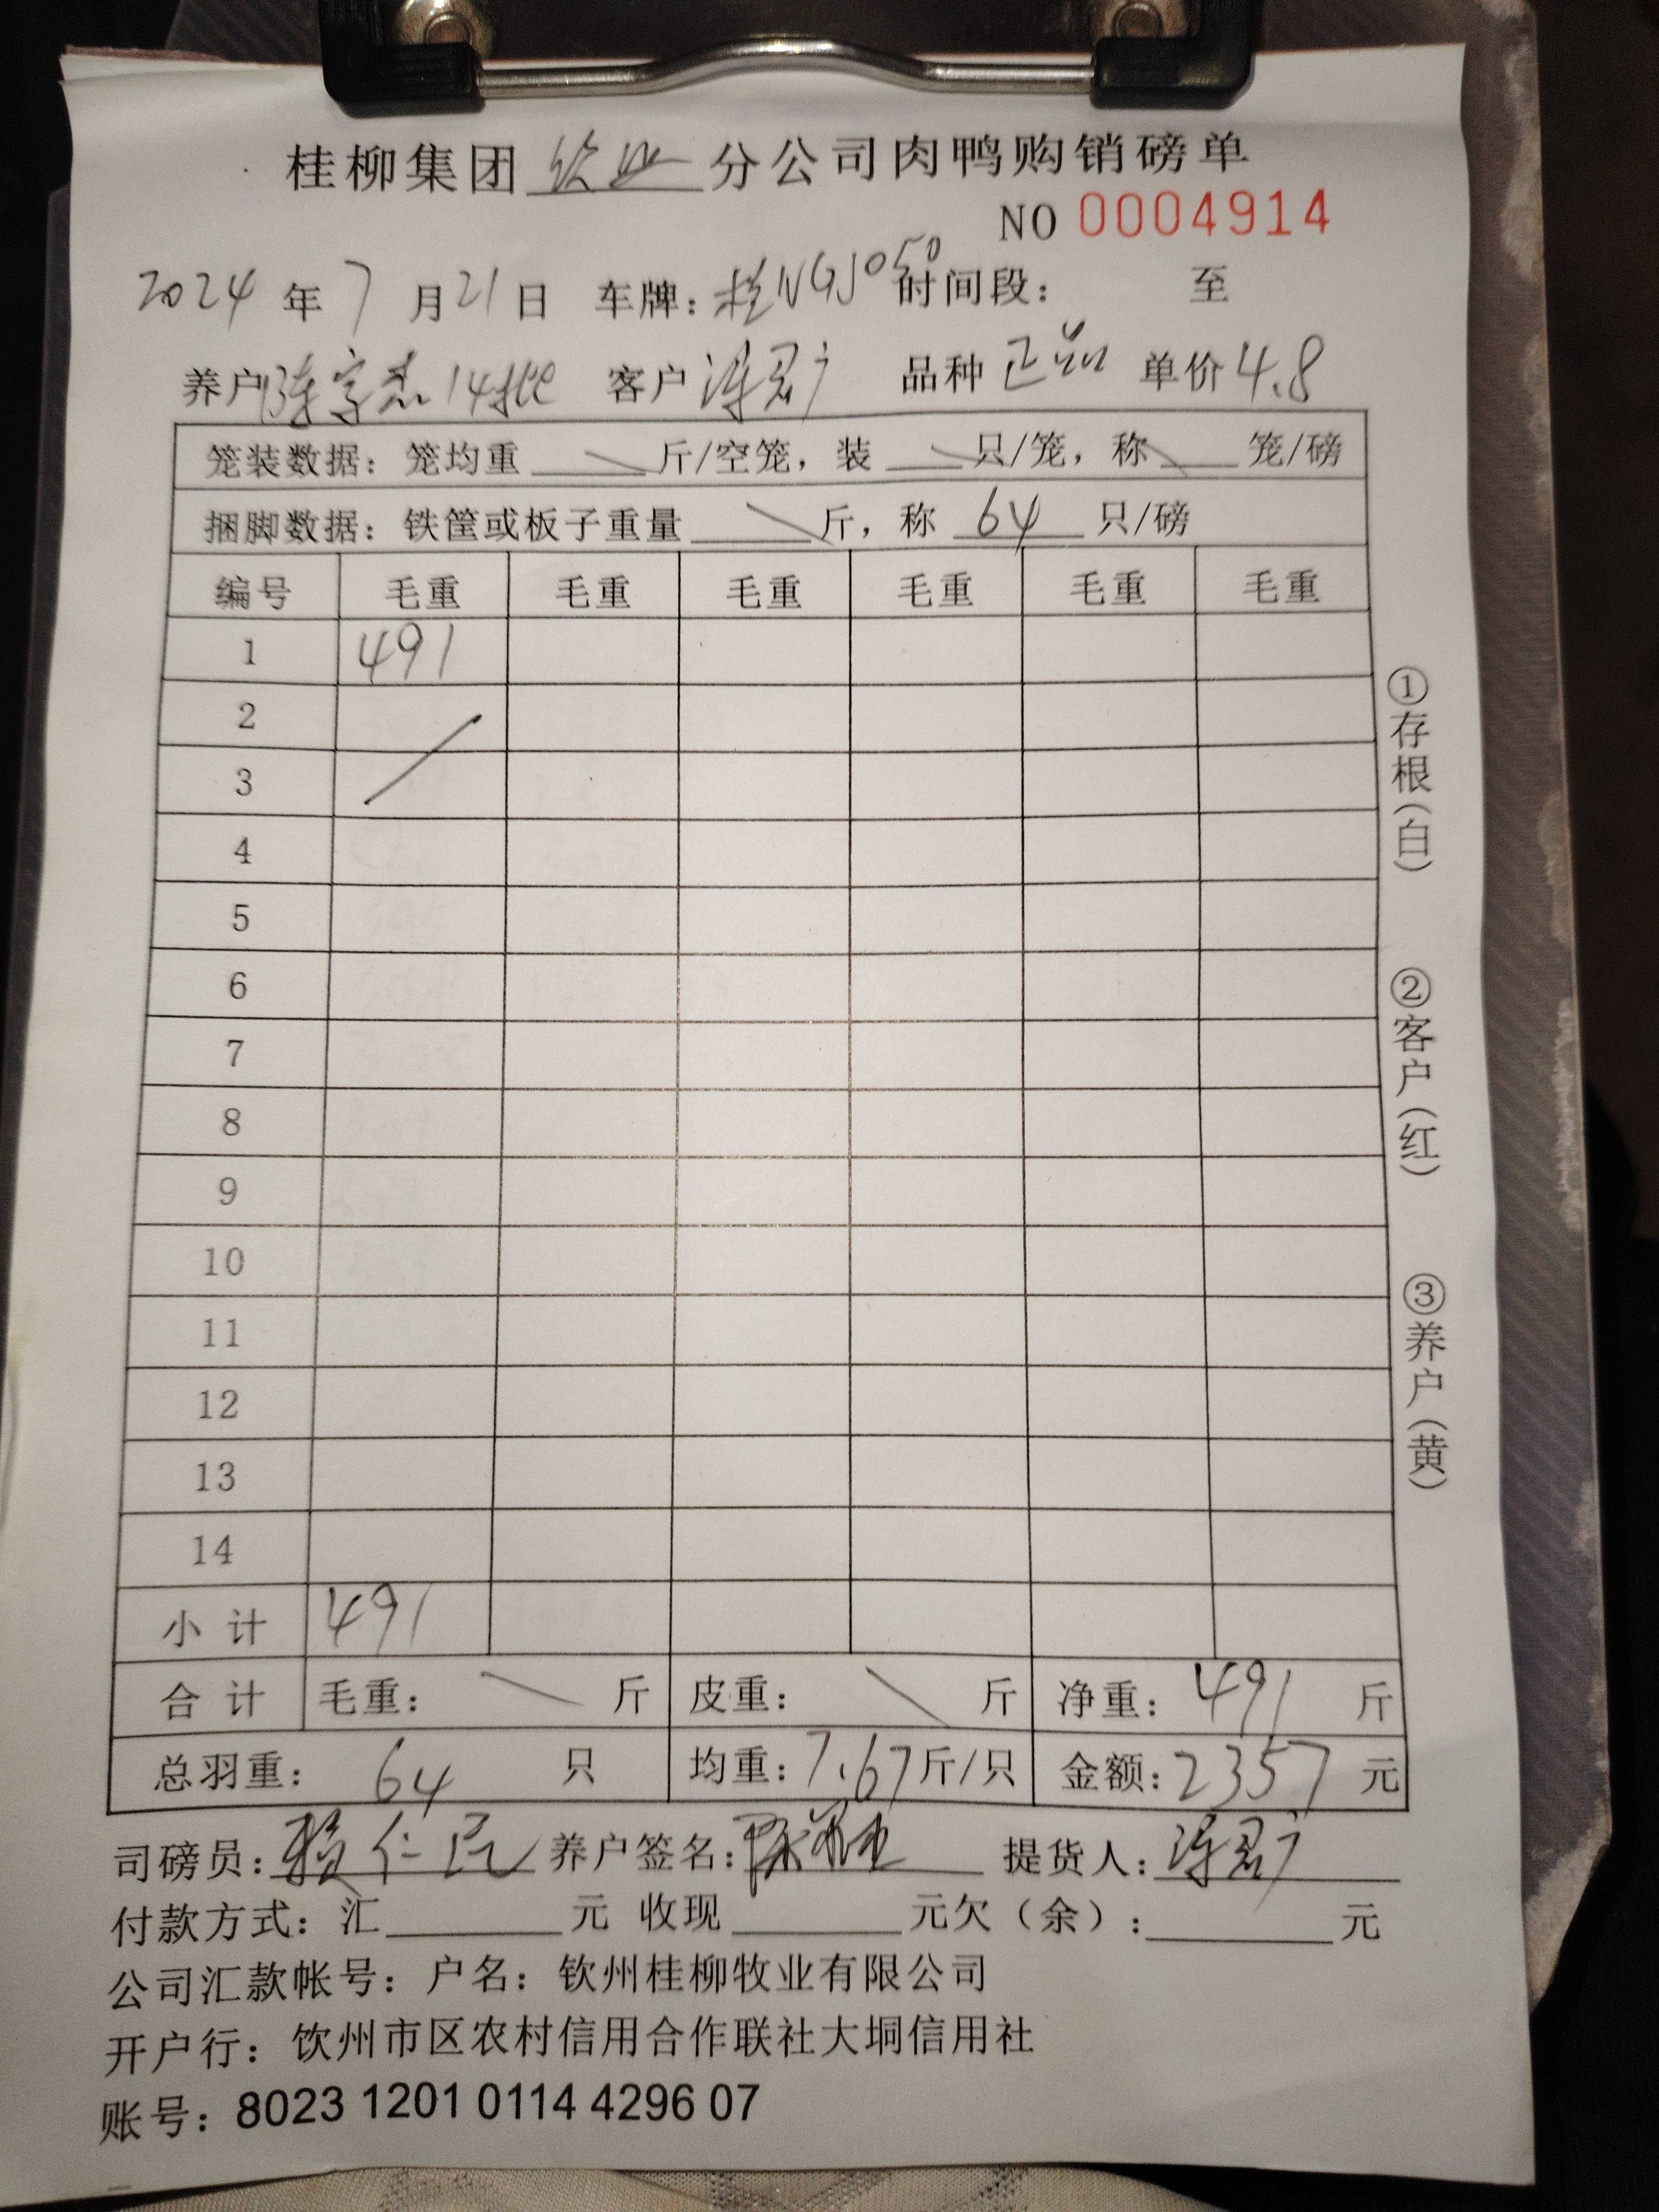 桂柳集团 钦州 分公司肉鸭购销磅单
NO 0004914
2024 年 7 月 21 日 车牌：桂NGJ050 时间段： 至
养户 陈宗杰 14批 客户 品种 正品 单价 4.8
笼装数据：笼均重 斤/空笼，装 只/笼，称 笼/磅
捆脚数据：铁筐或板子重量 斤，称 64 只/磅
编号 毛重 毛重 毛重 毛重 毛重 毛重
1 491
2
3
4
5
6
7
8
9
10
11
12
13
14
小计 491
合计 毛重： 斤 皮重： 斤 净重：491 斤
总羽重：64 只 均重：7.67斤/只 金额：2357 元
司磅员： 仁 养户签名：陈 提货人：
付款方式：汇 元 收现 元欠（余）： 元
公司汇款帐号：户名：钦州桂柳牧业有限公司
开户行：饮州市区农村信用合作联社大垌信用社
账号：8023 1201 0114 4296 07
①存根（白）
②客户（红）
③养户（黄）